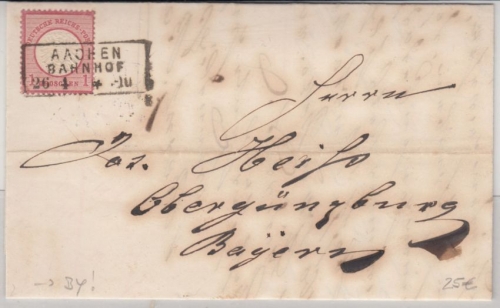 DEUTSCHE REICHS-POST
1 GROSCHEN 1
AACHEN
BAHNHOF
26 4 * -10
Herrn
Jos. Heiß
Obergünzburg
Bayern
→ BY!
25€